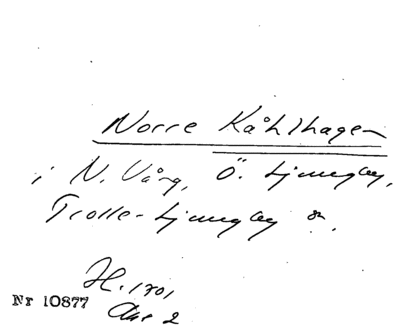 Norre Kåhlhagen
i N. Vång, Ö. Ljungby,
Trolle-Ljungby sn.
H. 1701
Akt 2
Nr 10877